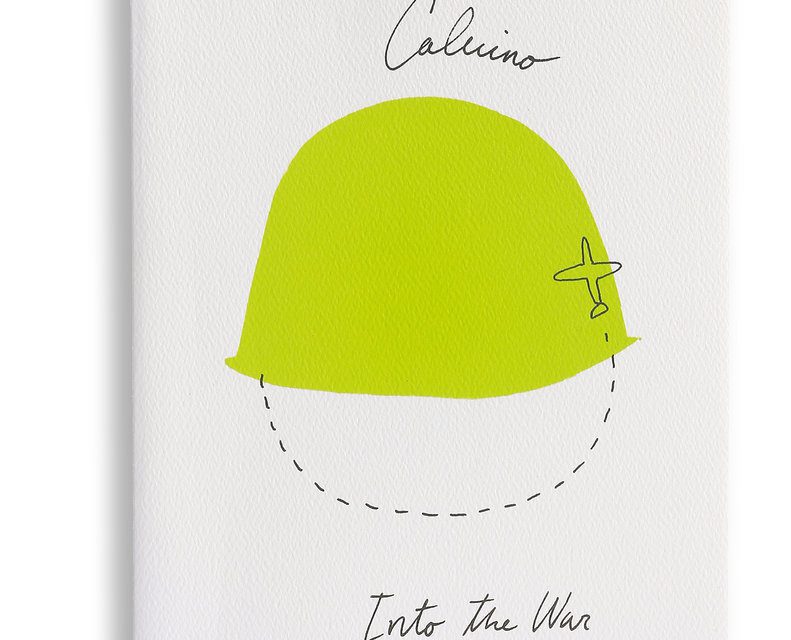 Calvino
Into the War